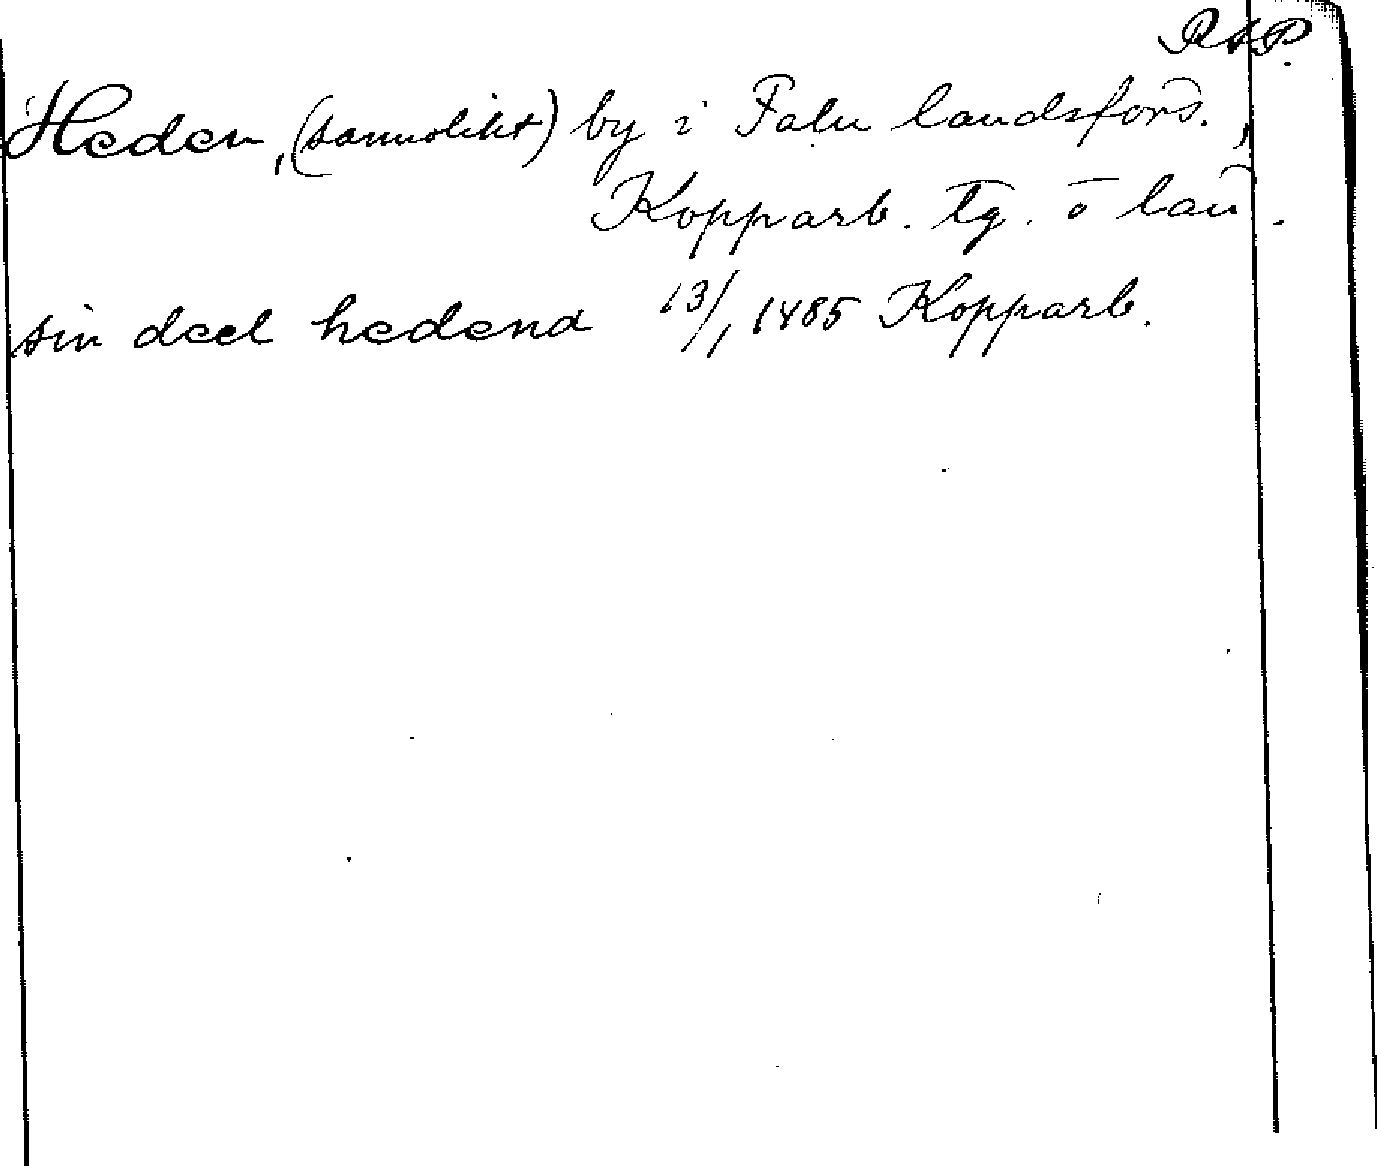 RAP.
Heden, (sannolikt) by i Falu landsförs.,
Kopparb. tg. o län.
sin deel hedena 13/1 1485 Kopparb.